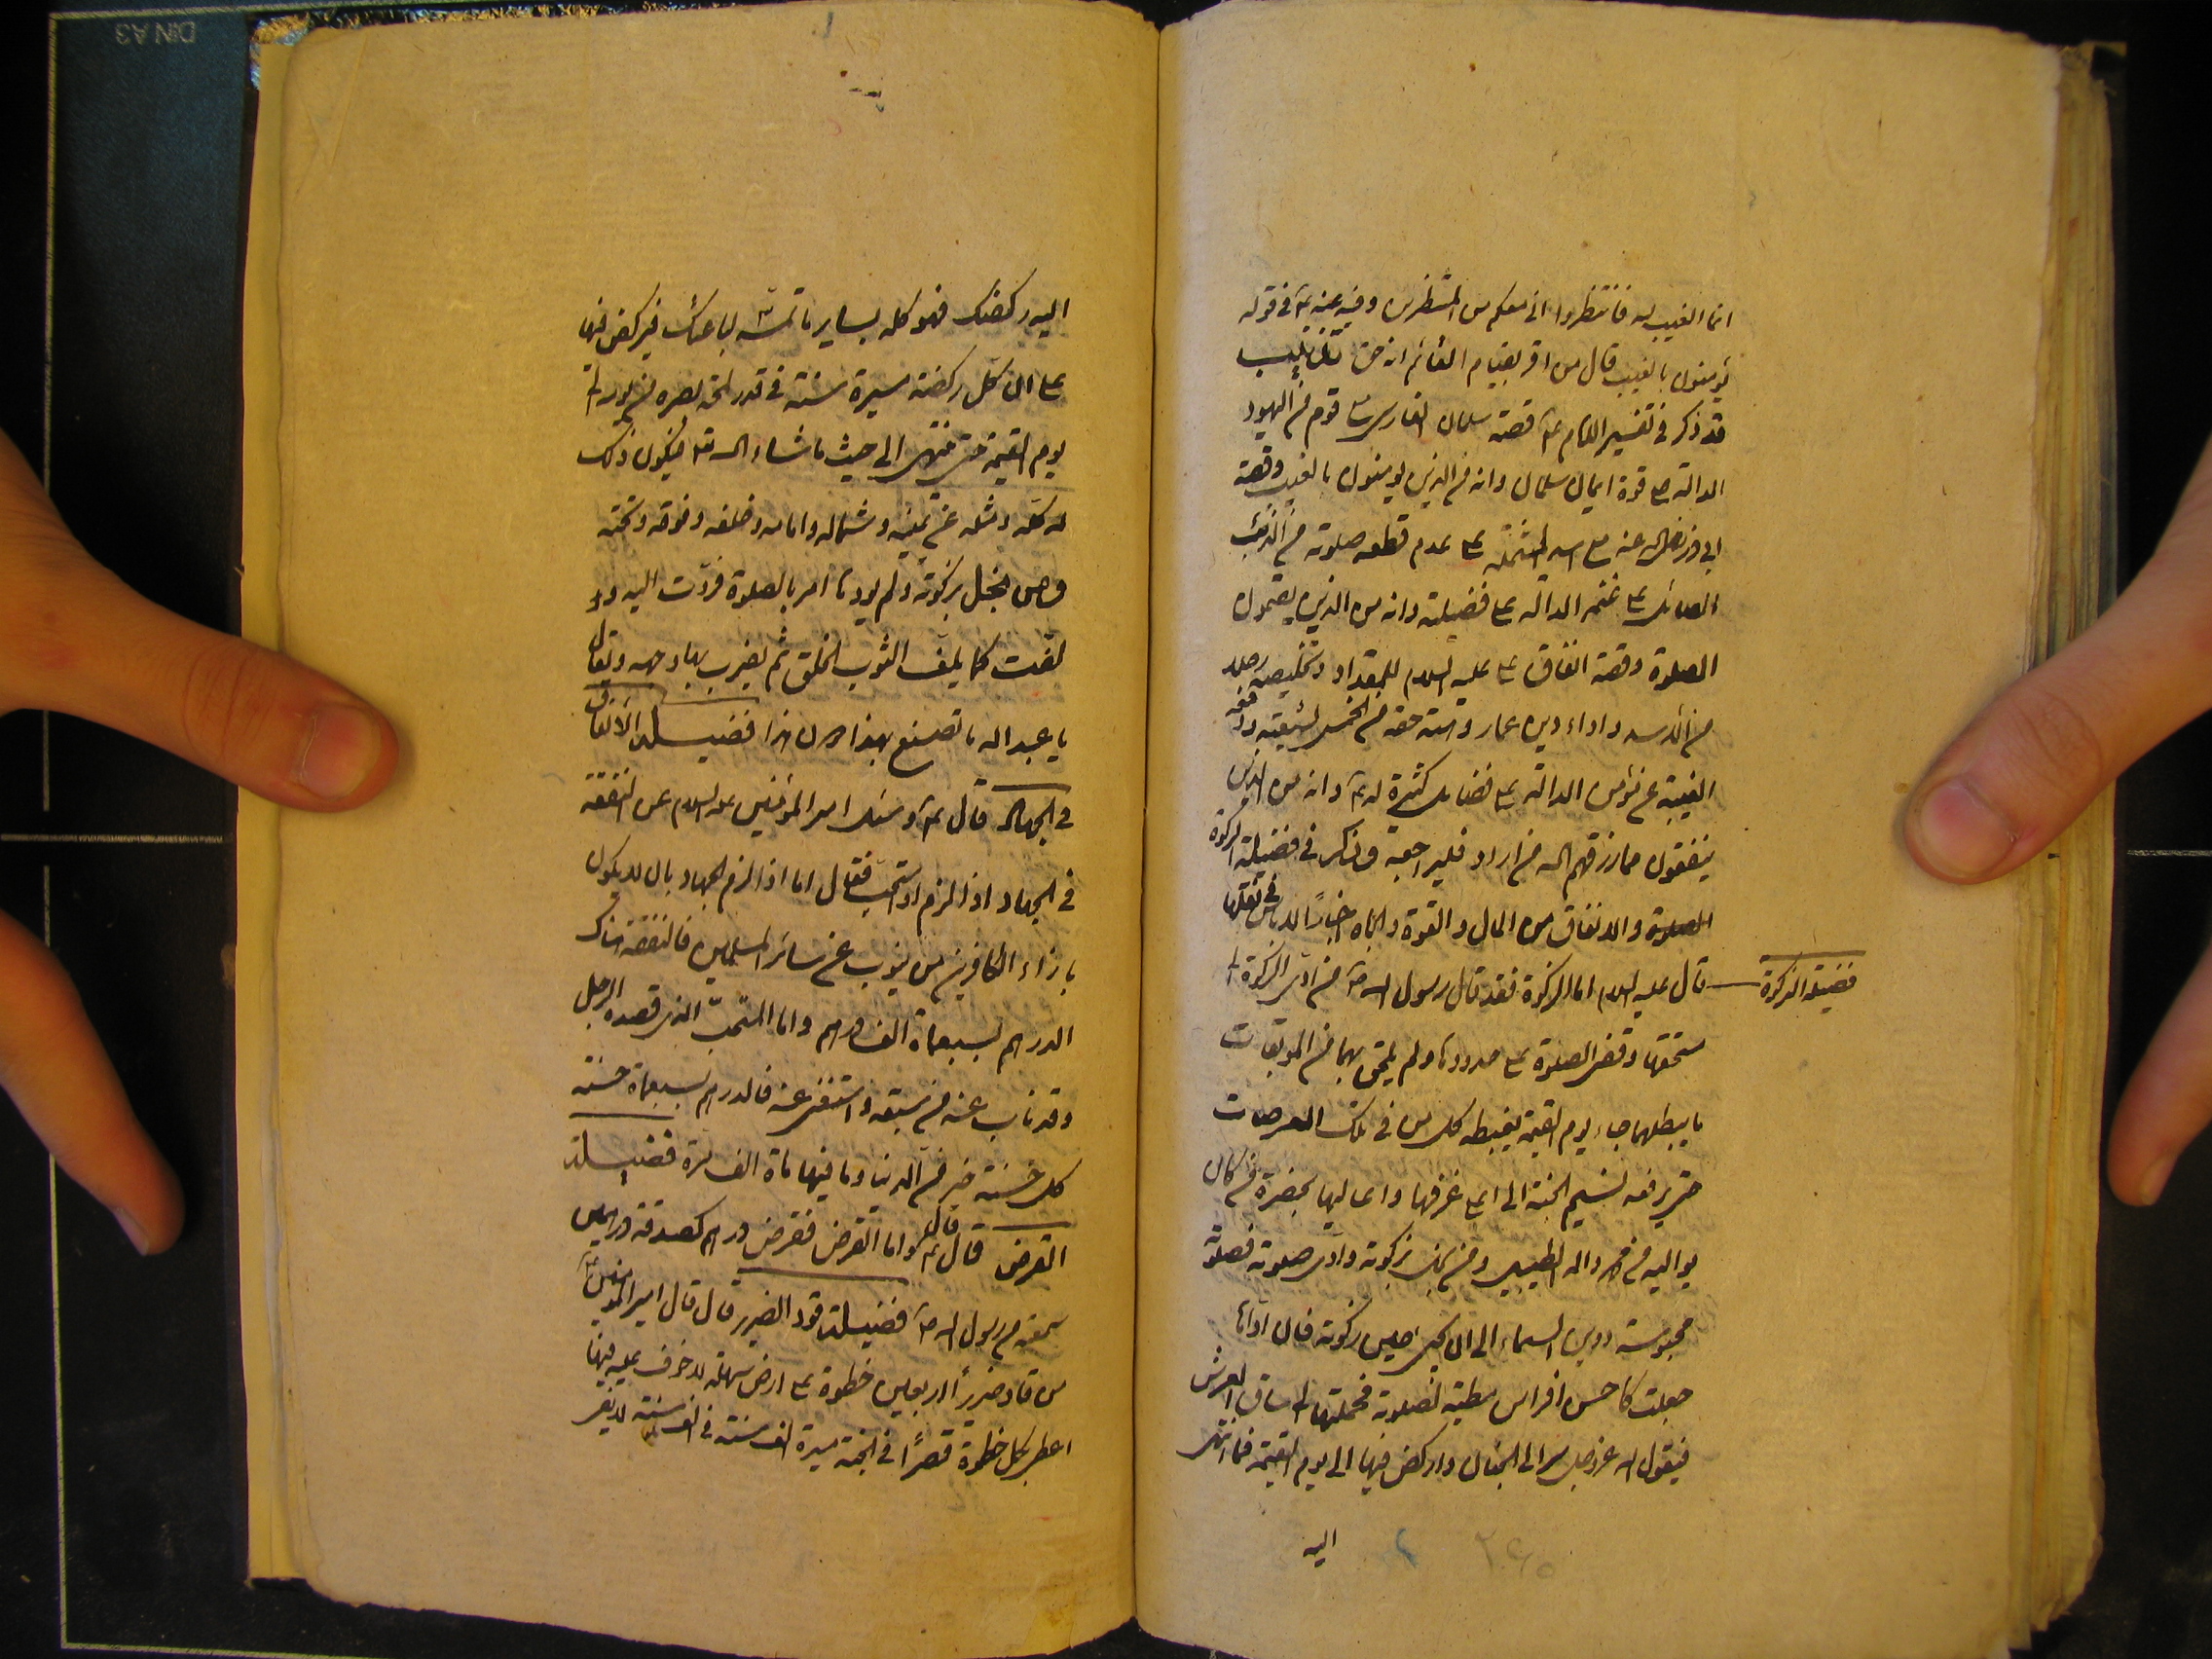 انما الغيب لله فانتظروا انى معكم من المنتظرين وفيه عنه ع فى قوله
يؤمنون بالغيب قال من اقر بقيام القائم انه حق
قد ذكر فى تفسير الامام ع قصة سلمان الفارسى مع قوم من اليهود
الدالة على قوة ايمان سلمان وانه من الذين يؤمنون بالغيب وقصة
ابى ذر رضى الله عنه مع المشتملة على عدم قطعه صلوته من الذئب
على غنمه الدالة على فضيلته وانه من الذين يقيمون
الصلوة وقصة انفاق على عليه السلام للمقداد وتخليصه رجلا
من واداء دين عمار وهبته حقه من الخمس لشيعته ودفعه
الغيبة عن مؤمن الدالة على فضائل كثيرة له ع وانه من الذين
ينفقون مما رزقهم الله من اراد فليراجعه وذكر فى فضيلة الزكوة
الصلوة والانفاق من المال والقوة والجاه اخبارًا لا باس فى نقلها
قال عليه السلام اما الزكوة فقد قال رسول الله ص من ادى الزكوة الى
فضيلة الزكوة
مستحقها وقضى الصلوة على حدودها ولم يلحق بهما من الموبقات
ما يبطلهما جاء يوم القيمة يغبطه كل من فى تلك العرصات
حتى يرفعه نسيم الجنة الى اعلى غرفها وعاليها بحضرة من كان
يواليه من محمد واله الطيبين ومن بخل بزكوته وادى صلوته فصلوته
محبوسة دوين السماء الى ان يجئ حين زكوته فان اداها
جعلت كاحسن افراس مطية لصلوته فحملتها الى ساق العرش
فيقول الله عز وجل سر الى الجنان واركض فيها الى يوم القيمة فما انتهى
اليه
اليه ركضك فهو كله بساير ما تمسه لباعثك فيركض فيها
على ان كل ركضة مسيرة سنة فى قدر لمحة بصره من يومه الى
يوم القيمة حتى ينتهى الى حيث ما شاء الله تع فيكون ذلك
له كله ومثله عن يمينه وشماله وامامه وخلفه وفوقه وتحته
ومن بخل بزكوته ولم يودها امر بالصلوة فردّت اليه و
لفت كما يلف الثوب الخلق ثم يضرب بها وجهه ويقال
يا عبد الله ما تصنع بهذا دون هذا فضيلة الانفاق
فى الجهاد قال ع وسئل امير المؤمنين عليه السلام عن النفقة
فى الجهاد اذا لزم او استحب فقال اما اذا لزم الجهاد بان لا يكون
بازاء الكافرين من ينوب عن سائر المسلمين فالنفقة هناك
الدرهم بسبعماة الف درهم واما المستحب الذى قصده الرجل
وقد ناب عنه من سبقه واستغنى عنه فالدرهم بسبعماة حسنة
كل حسنة خير من الدنيا وما فيها ماة الف مرة فضيلة
القرض قال ع قال واما القرض فقرض درهم كصدقة درهمين
سمعته من رسول الله ص فضيلة قود الضرير قال قال امير المؤمنين ع
من قاد ضريرًا اربعين خطوة على ارض سهلة لا خوف عليه فيها
اعطى بكل خطوة قصرًا فى الجنة مسيرة الف سنة فى الف سنة لا يفى